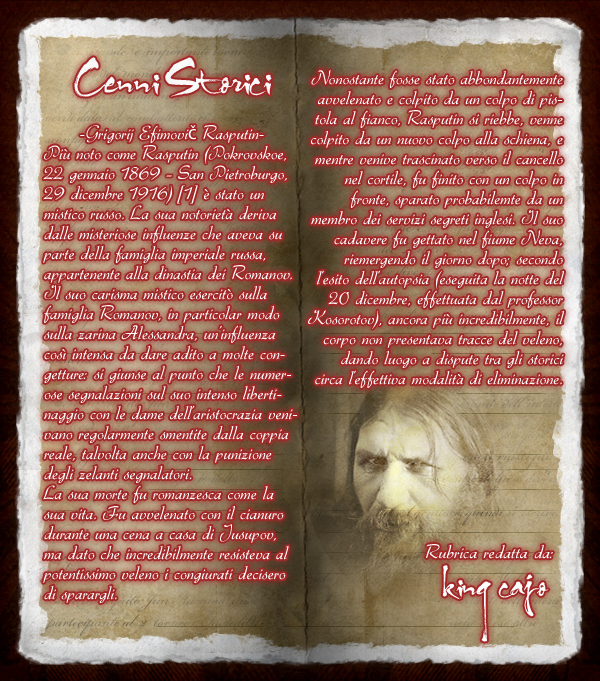 Cenni Storici
-Grigorij Efimovič Rasputin-
Più noto come Rasputin (Pokrovskoe,
22 gennaio 1869 - San Pietroburgo,
29 dicembre 1916) [1] è stato un
mistico russo. La sua notorietà deriva
dalle misteriose influenze che aveva su
parte della famiglia imperiale russa,
appartenente alla dinastia dei Romanov.
Il suo carisma mistico esercitò sulla
famiglia Romanov, in particolar modo
sulla zarina Alessandra, un'influenza
così intensa da dare adito a molte con-
getture: si giunse al punto che le numer-
ose segnalazioni sul suo intenso liberti-
naggio con le dame dell'aristocrazia veni-
vano regolarmente smentite dalla coppia
reale, talvolta anche con la punizione
degli zelanti segnalatori.
La sua morte fu romanzesca come la
sua vita. Fu avvelenato con il cianuro
durante una cena a casa di Jusupov,
ma dato che incredibilmente resisteva al
potentissimo veleno i congiurati decisero
di sparargli.
Nonostante fosse stato abbondantemente
avvelenato e colpito da un colpo di pis-
tola al fianco, Rasputin si riebbe, venne
colpito da un nuovo colpo alla schiena, e
mentre venive trascinato verso il cancello
nel cortile, fu finito con un colpo in
fronte, sparato probabilemte da un
membro dei servizi segreti inglesi. Il suo
cadavere fu gettato nel fiume Neva,
riemergendo il giorno dopo; secondo
l'esito dell'autopsia (eseguita la notte del
20 dicembre, effettuata dal professor
Kosorotov), ancora più incredibilmente, il
corpo non presentava tracce del veleno,
dando luogo a dispute tra gli storici
circa l'effettiva modalità di eliminazione.
Rubrica redatta da:
king cajo